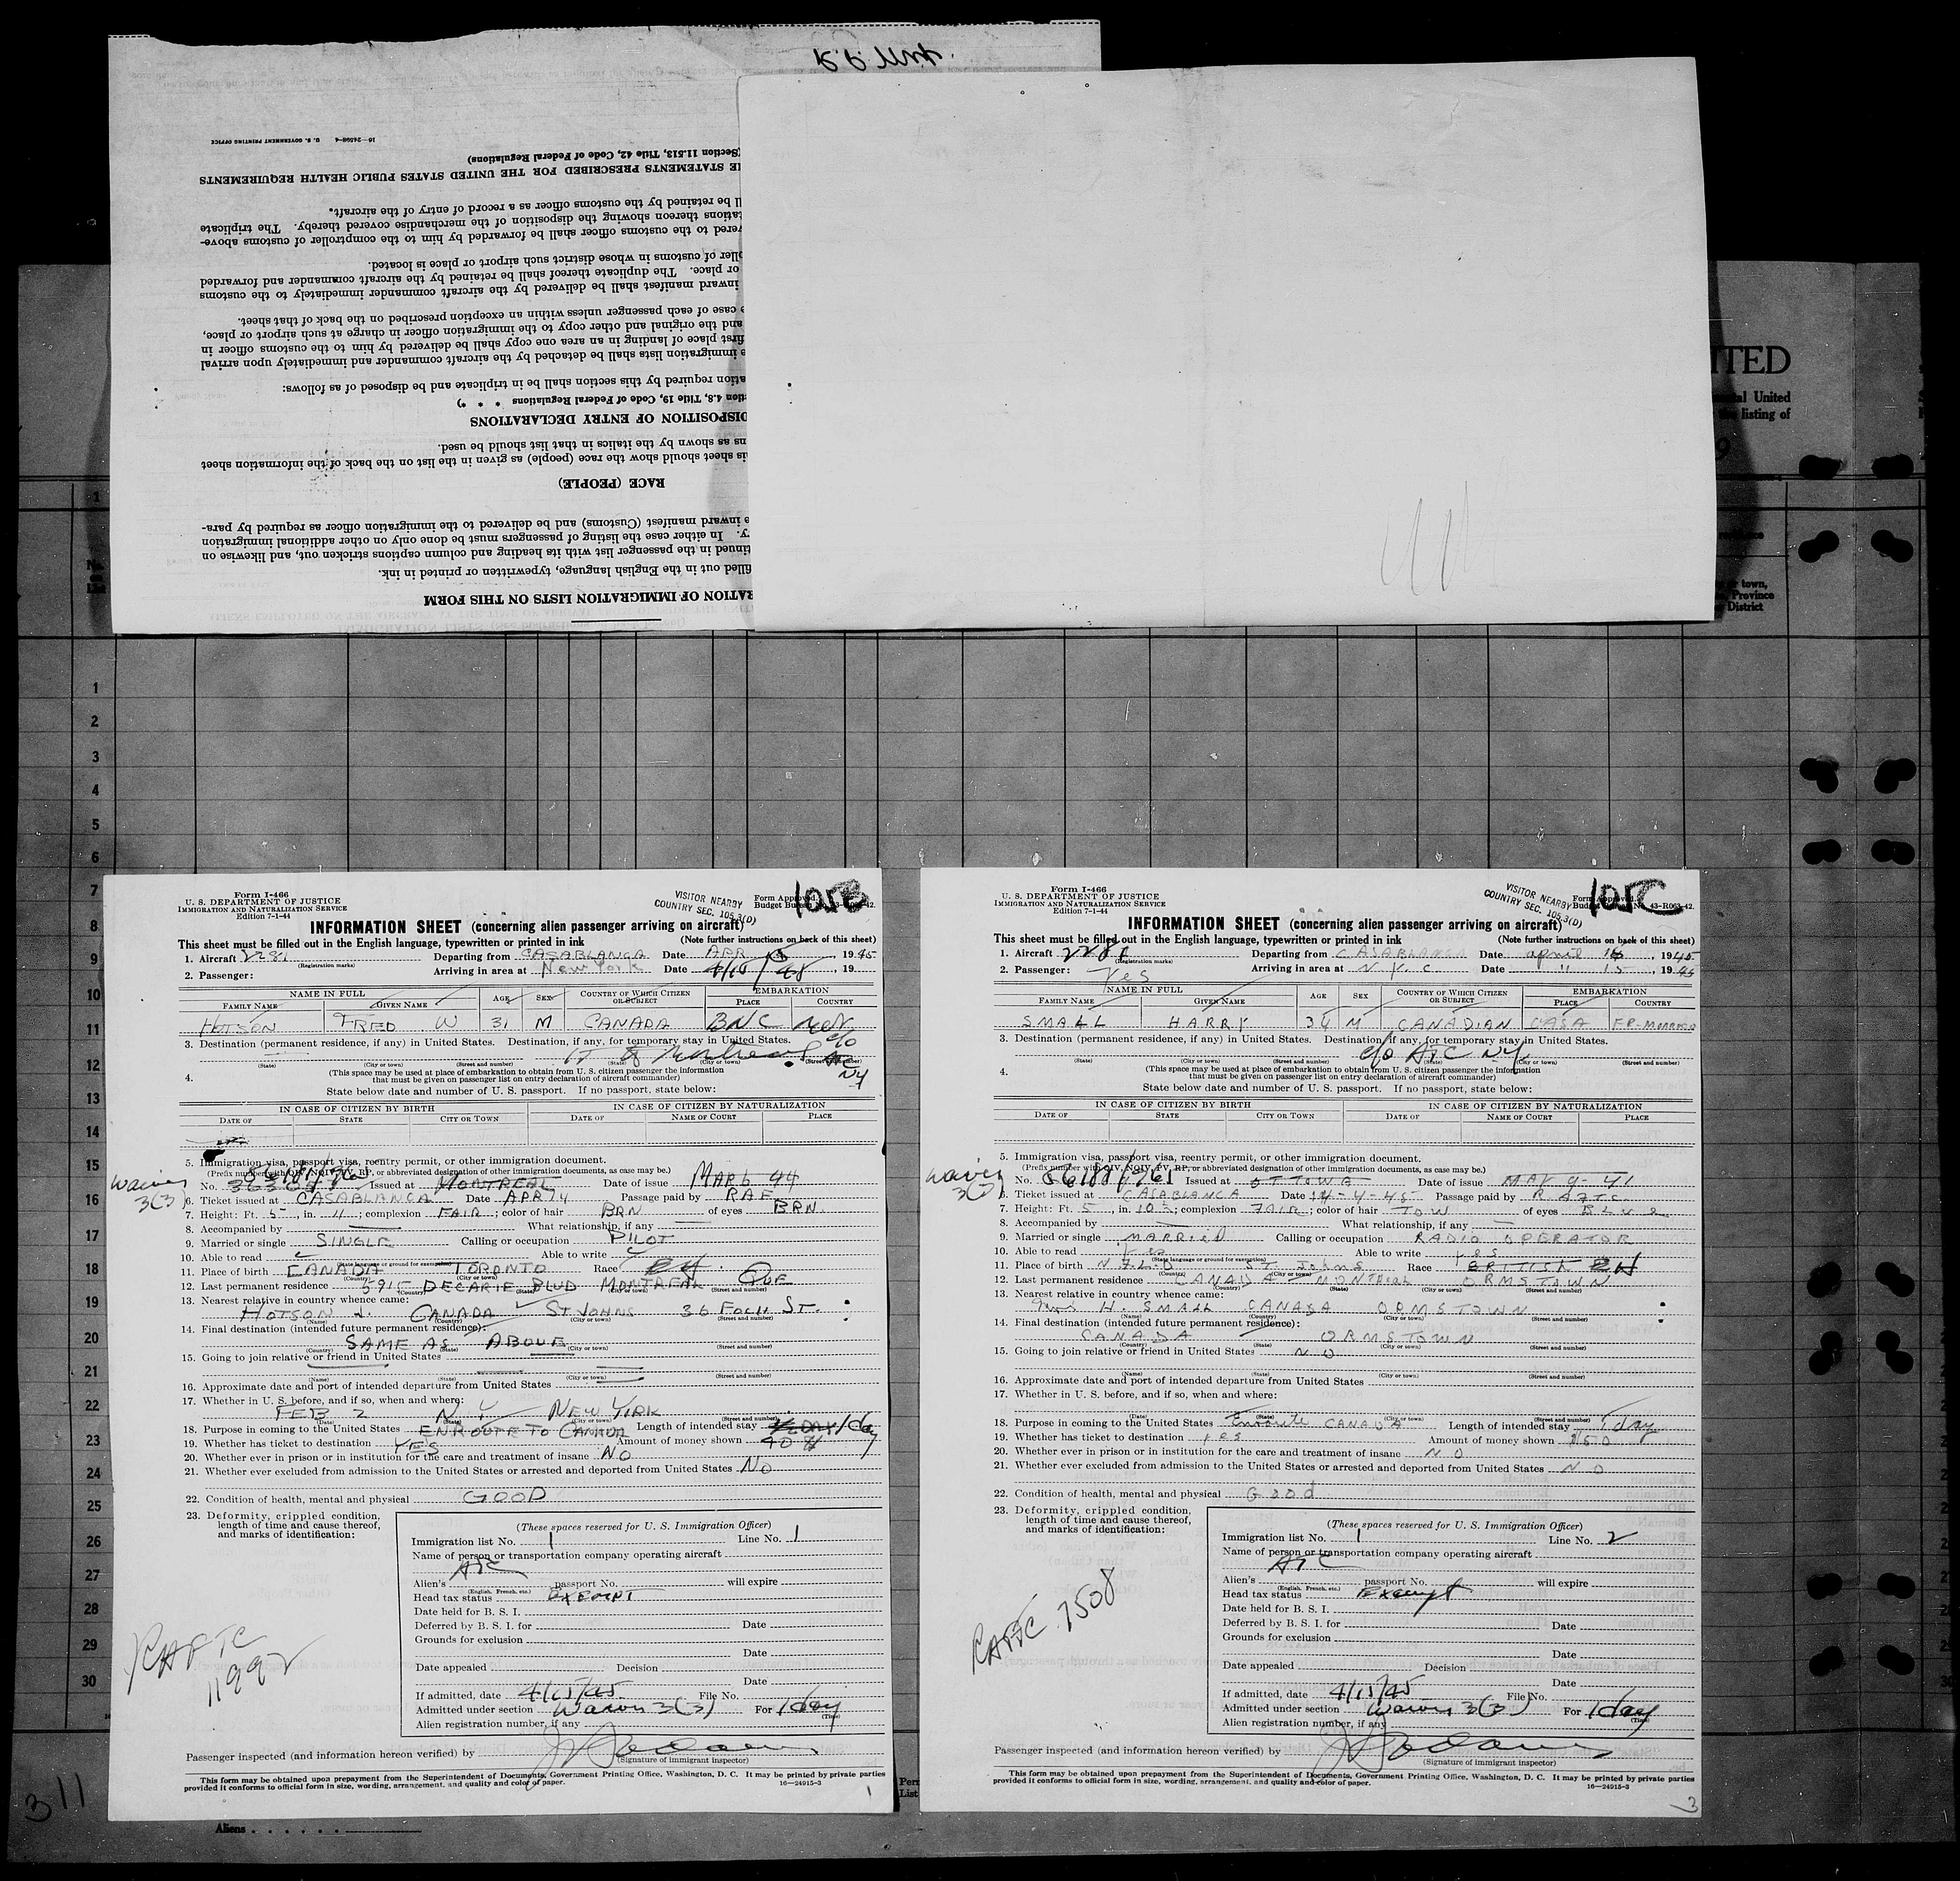 R.P.
16—24598-4 U. S. GOVERNMENT PRINTING OFFICE
(Section 11.513, Title 42, Code of Federal Regulations)
E STATEMENTS PRESCRIBED FOR THE UNITED STATES PUBLIC HEALTH REQUIREMENTS
ll be retained by the customs officer as a record of entry of the aircraft.
tations thereon showing the disposition of the merchandise covered thereby. The triplicate
vered to the customs officer shall be forwarded by him to the comptroller of customs above-
ller of customs in whose district such airport or place is located.
or place. The duplicate thereof shall be retained by the aircraft commander and forwarded
inward manifest shall be delivered by the aircraft commander immediately to the customs
e case of each passenger unless within an exception prescribed on the back of that sheet.
and the original and other copy to the immigration officer in charge at such airport or place,
first place of landing in an area one copy shall be delivered by him to the customs officer in
e immigration lists shall be detached by the aircraft commander and immediately upon arrival
ation required by this section shall be in triplicate and be disposed of as follows:
tion 4.8, Title 19, Code of Federal Regulations * * *)
DISPOSITION OF ENTRY DECLARATIONS
ns as shown by the italics in that list should be used.
is sheet should show the race (people) as given in the list on the back of the information sheet
RACE (PEOPLE)
e inward manifest (Customs) and be delivered to the immigration officer as required by para-
ry. In either case the listing of passengers must be done only on other additional immigration
tinued in the passenger list with its heading and column captions stricken out, and likewise on
filled out in the English language, typewritten or printed in ink.
RATION OF IMMIGRATION LISTS ON THIS FORM
ITED
al United
the listing of
9
or town,
Province
District
1
1
2
3
4
5
6
7
8
9
10
11
12
13
14
15
16
17
18
19
20
21
22
23
24
25
26
27
28
29
30
Form I-466
U. S. DEPARTMENT OF JUSTICE
IMMIGRATION AND NATURALIZATION SERVICE
Edition 7-1-44
VISITOR NEARBY
COUNTRY SEC. 105.3(D)
Form Approved.
Budget Bureau No. 43-R063-42.
105B
INFORMATION SHEET (concerning alien passenger arriving on aircraft)
This sheet must be filled out in the English language, typewritten or printed in ink (Note further instructions on back of this sheet)
1. Aircraft 2281 (Registration marks) Departing from CASABLANCA Date APR 1945
2. Passenger: Arriving in area at New York Date 4/15/45, 19
NAME IN FULL AGE SEX COUNTRY OF WHICH CITIZEN OR SUBJECT EMBARKATION
FAMILY NAME GIVEN NAME PLACE COUNTRY
HOTSON FRED W 31 M CANADA
3. Destination (permanent residence, if any) in United States. Destination, if any, for temporary stay in United States.
c/o ATC NY
(State) (City or town) (Street and number) (State) (City or town) (Street and number)
4. (This space may be used at place of embarkation to obtain from U. S. citizen passenger the information
that must be given on passenger list on entry declaration of aircraft commander)
State below date and number of U. S. passport. If no passport, state below:
IN CASE OF CITIZEN BY BIRTH IN CASE OF CITIZEN BY NATURALIZATION
DATE OF STATE CITY OR TOWN DATE OF NAME OF COURT PLACE
5. Immigration visa, passport visa, reentry permit, or other immigration document.
(Prefix number with QIV, NQIV, PV, RP, or abbreviated designation of other immigration documents, as case may be.)
waiver 3(3)
No. Issued at MONTREAL Date of issue MAR 6 44
6. Ticket issued at CASABLANCA Date APR 14 Passage paid by RAF
7. Height: Ft. 5, in. 11; complexion FAIR; color of hair BRN of eyes BRN.
8. Accompanied by What relationship, if any
9. Married or single SINGLE Calling or occupation PILOT
10. Able to read (State language or ground for exemption) Able to write
11. Place of birth CANADA TORONTO Race
(Country) (City or town)
12. Last permanent residence 5915 DECARIE BLVD MONTREAL QUE
(Country) (State) (City or town) (Street and number)
13. Nearest relative in country whence came:
HOTSON CANADA ST JOHNS 36 FOCH ST.
(Name) (Country) (City or town) (Street and number)
14. Final destination (intended future permanent residence):
SAME AS ABOVE
(Country) (State) (City or town) (Street and number)
15. Going to join relative or friend in United States
(Name) (State) (City or town) (Street and number)
16. Approximate date and port of intended departure from United States
17. Whether in U. S. before, and if so, when and where:
FEB 2 N Y NEW YORK
(Date) (State) (City or town) (Street and number)
18. Purpose in coming to the United States ENROUTE TO CANADA Length of intended stay 1 day
19. Whether has ticket to destination YES Amount of money shown 40 $
20. Whether ever in prison or in institution for the care and treatment of insane NO
21. Whether ever excluded from admission to the United States or arrested and deported from United States NO
22. Condition of health, mental and physical GOOD
23. Deformity, crippled condition,
length of time and cause thereof,
and marks of identification:
RAFTC
11992
(These spaces reserved for U. S. Immigration Officer)
Immigration list No. 1 Line No. 1
Name of person or transportation company operating aircraft
ATC
Alien's (English, French, etc.) passport No. will expire
Head tax status EXEMPT
Date held for B. S. I.
Deferred by B. S. I. for Date
Grounds for exclusion
Date
Date appealed Decision
Date
If admitted, date 4/15/45 File No.
Admitted under section Waiver 3(3) For 1 day
(Time)
Alien registration number, if any
Passenger inspected (and information hereon verified) by
(Signature of immigrant inspector)
This form may be obtained upon prepayment from the Superintendent of Documents, Government Printing Office, Washington, D. C. It may be printed by private parties
provided it conforms to official form in size, wording, arrangement, and quality and color of paper. 16—24915-3
1
Form I-466
U. S. DEPARTMENT OF JUSTICE
IMMIGRATION AND NATURALIZATION SERVICE
Edition 7-1-44
VISITOR NEARBY
COUNTRY SEC. 105.3(D)
Form Approved.
Budget Bureau No. 43-R063-42.
105C
INFORMATION SHEET (concerning alien passenger arriving on aircraft)
This sheet must be filled out in the English language, typewritten or printed in ink (Note further instructions on back of this sheet)
1. Aircraft 2281 (Registration marks) Departing from CASABLANCA Date april 14, 1945
2. Passenger: Yes Arriving in area at N.Y.C Date " 15, 1945
NAME IN FULL AGE SEX COUNTRY OF WHICH CITIZEN OR SUBJECT EMBARKATION
FAMILY NAME GIVEN NAME PLACE COUNTRY
SMALL HARRY 34 M CANADIAN CASA FR-MOROCCO
3. Destination (permanent residence, if any) in United States. Destination, if any, for temporary stay in United States.
c/o ATC NY
(State) (City or town) (Street and number) (State) (City or town) (Street and number)
4. (This space may be used at place of embarkation to obtain from U. S. citizen passenger the information
that must be given on passenger list on entry declaration of aircraft commander)
State below date and number of U. S. passport. If no passport, state below:
IN CASE OF CITIZEN BY BIRTH IN CASE OF CITIZEN BY NATURALIZATION
DATE OF STATE CITY OR TOWN DATE OF NAME OF COURT PLACE
5. Immigration visa, passport visa, reentry permit, or other immigration document.
(Prefix number with QIV, NQIV, PV, RP, or abbreviated designation of other immigration documents, as case may be.)
waiver 3(3)
No. Issued at OTTOWA Date of issue MAY 9 - 41
6. Ticket issued at CASABLANCA Date 14-4-45 Passage paid by R.A.F.T.C.
7. Height: Ft. 5, in. 10½; complexion FAIR; color of hair TOW of eyes BLue
8. Accompanied by What relationship, if any
9. Married or single MARRIED Calling or occupation RADIO OPERATOR
10. Able to read Yes (State language or ground for exemption) Able to write yes
11. Place of birth NFLD ST. JOHNS Race BRITISH
(Country) (City or town)
12. Last permanent residence CANADA MONTREAL ORMSTOWN
(Country) (State) (City or town) (Street and number)
13. Nearest relative in country whence came:
Mrs H. SMALL CANADA ORMSTOWN
(Name) (Country) (City or town) (Street and number)
14. Final destination (intended future permanent residence):
CANADA ORMSTOWN
(Country) (State) (City or town) (Street and number)
15. Going to join relative or friend in United States NO
(Name) (State) (City or town) (Street and number)
16. Approximate date and port of intended departure from United States
17. Whether in U. S. before, and if so, when and where:
(Date) (State) (City or town) (Street and number)
18. Purpose in coming to the United States Enroute CANADA Length of intended stay 1 day
19. Whether has ticket to destination yes Amount of money shown $150
20. Whether ever in prison or in institution for the care and treatment of insane NO
21. Whether ever excluded from admission to the United States or arrested and deported from United States NO
22. Condition of health, mental and physical Good
23. Deformity, crippled condition,
length of time and cause thereof,
and marks of identification:
RAFTC 7508
(These spaces reserved for U. S. Immigration Officer)
Immigration list No. 1 Line No. 2
Name of person or transportation company operating aircraft
ATC
Alien's (English, French, etc.) passport No. will expire
Head tax status Exempt
Date held for B. S. I.
Deferred by B. S. I. for Date
Grounds for exclusion
Date
Date appealed Decision
Date
If admitted, date 4/15/45 File No.
Admitted under section Waiver 3(3) For 1 day
(Time)
Alien registration number, if any
Passenger inspected (and information hereon verified) by
(Signature of immigrant inspector)
This form may be obtained upon prepayment from the Superintendent of Documents, Government Printing Office, Washington, D. C. It may be printed by private parties
provided it conforms to official form in size, wording, arrangement, and quality and color of paper. 16—24915-3
3
311
Aliens
List